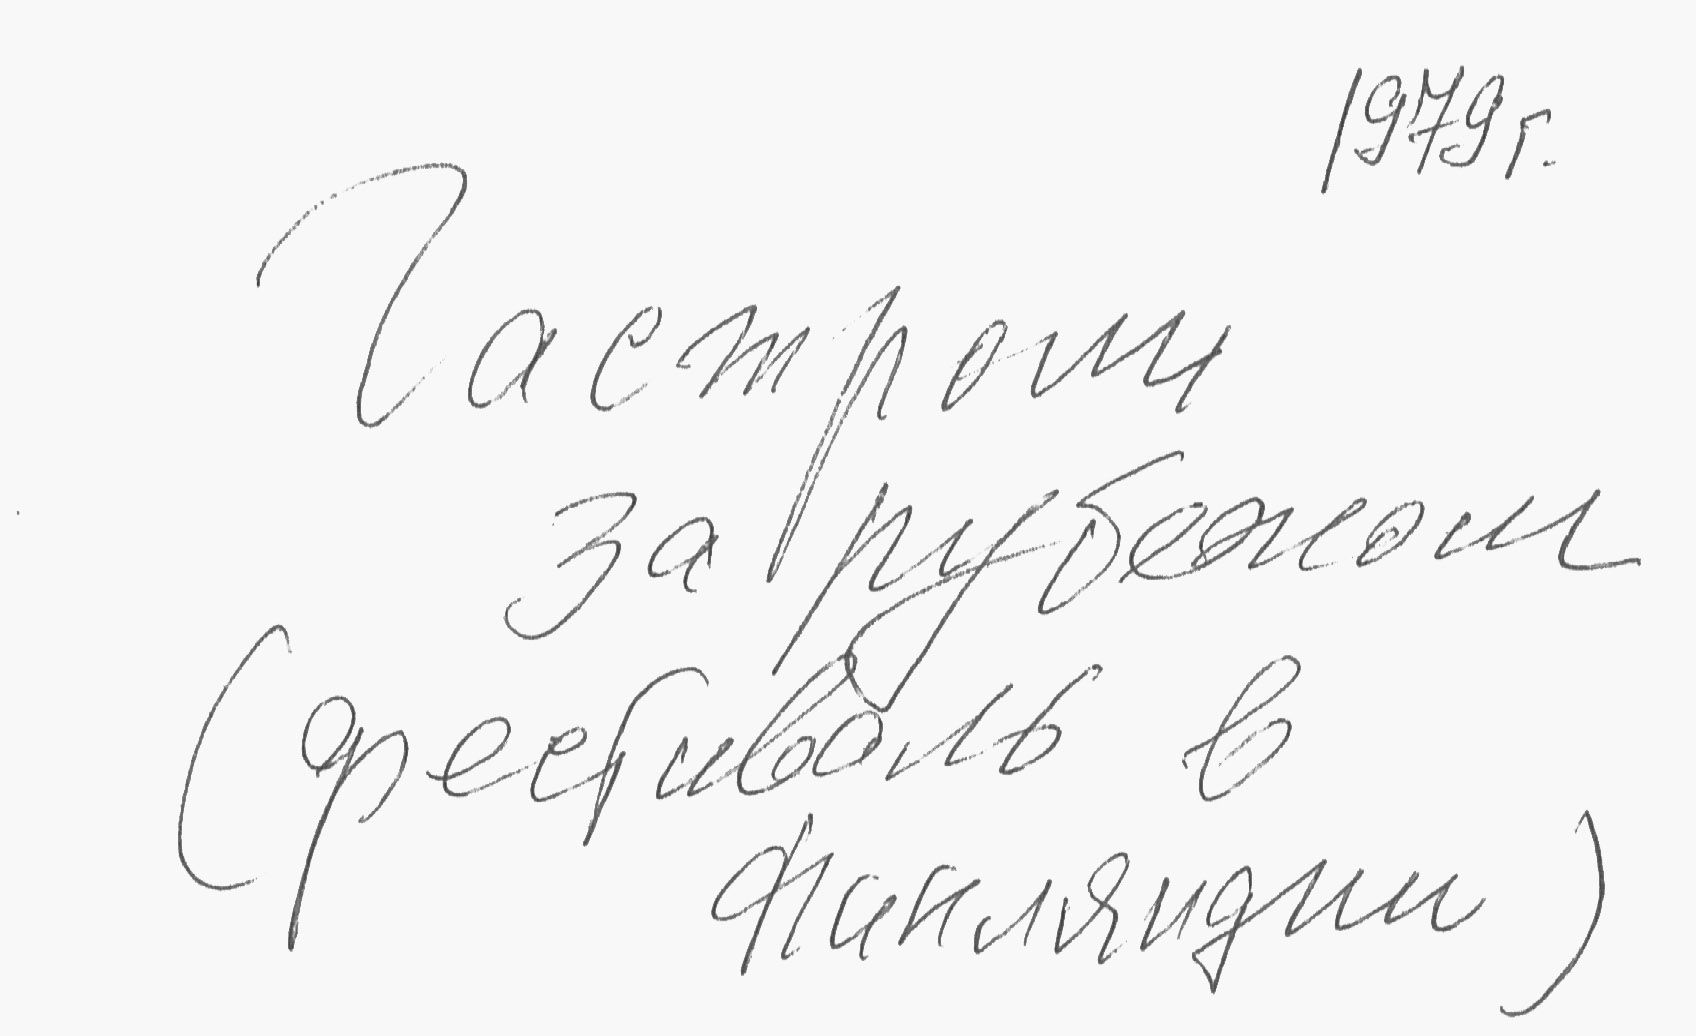 1979 г.
Гастроли
за рубежом
(фестиваль в
Финляндии)